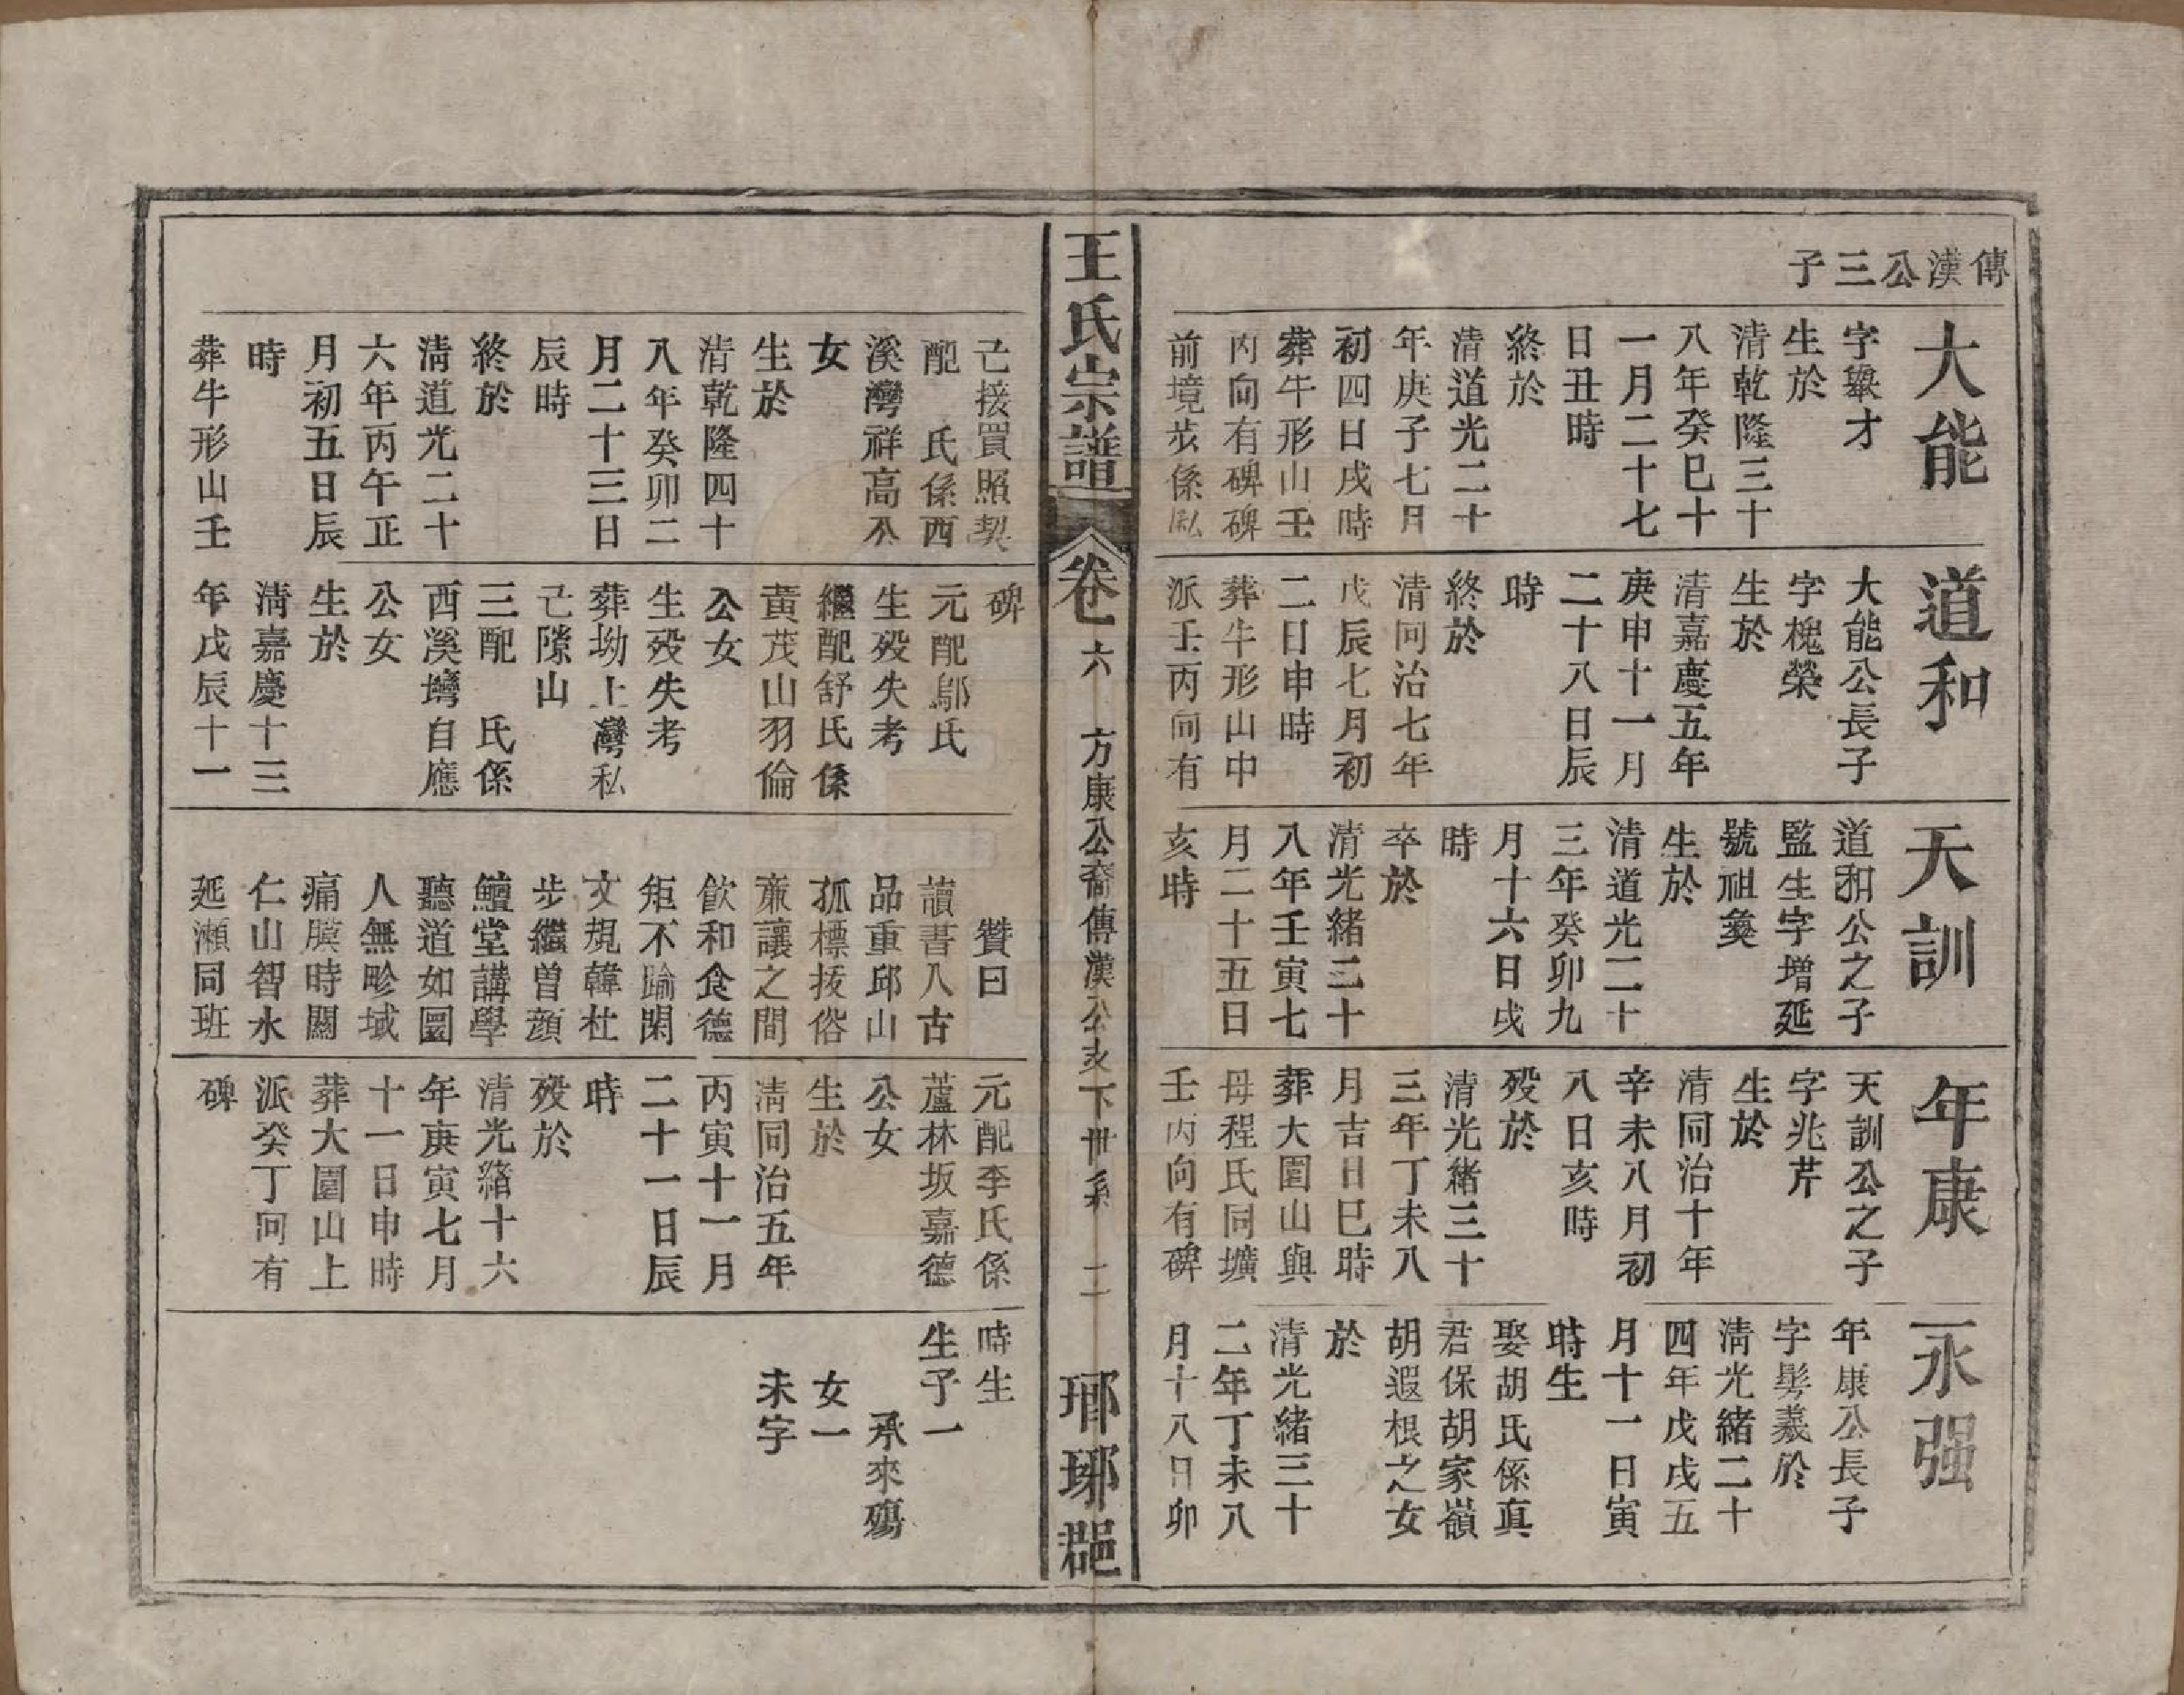 傳漢公三子
大能
字舉才
生於
清乾隆三十
八年癸巳十
一月二十七
日丑時
終於
清道光二十
年庚子七月
初四日戌時
葬牛形山壬
丙向有碑碑
前境步係俬
道和
大能公長子
字槐榮
生於
清嘉慶五年
庚申十一月
二十八日辰
時
終於
清同治七年
戊辰七月初
二日申時
葬牛形山中
派壬丙向有
天訓
道和公之子
監生字增延
號祖奐
生於
清道光二十
三年癸卯九
月十六日戌
時
卒於
清光緒三十
八年壬寅七
月二十五日
亥時
年康
天訓公之子
字兆芹
生於
清同治十年
辛未八月初
八日亥時
歿於
清光緒三十
三年丁未八
月吉日巳時
葬大圍山與
母程氏同壙
壬丙向有碑
永强
年康公長子
字髣義於
清光緒二十
四年戊戌五
月十一日寅
時生
娶胡氏係真
君保胡家嶺
胡遐根之女
於
清光緒三十
二年丁未八
月十八日卯
王氏宗譜
卷 六
方康公裔傳漢公支下世系
二
瑘琊郡
己接買照契
配 氏係西
溪灣祥高公
女
生於
清乾隆四十
八年癸卯二
月二十三日
辰時
終於
清道光二十
六年丙午正
月初五日辰
時
葬牛形山壬
碑
元配鄔氏
生歿失考
繼配舒氏係
黃茂山羽倫
公女
生歿失考
葬坳上灣私
己隙山
三配 氏係
西溪塆自應
公女
生於
清嘉慶十三
年戊辰十一
贊曰
讀書入古
品重邱山
孤標拔俗
亷讓之間
飲和食德
矩不踰閑
文規韓杜
步繼曾顔
鱣堂講學
聽道如圜
人無畛域
痛膜時關
仁山智水
延瀨同班
元配李氏係
蘆林坂嘉德
公女
生於
清同治五年
丙寅十一月
二十一日辰
時
歿於
清光緒十六
年庚寅七月
十一日申時
葬大圍山上
派癸丁向有
碑
時生
生子一
承來殤
女一
未字